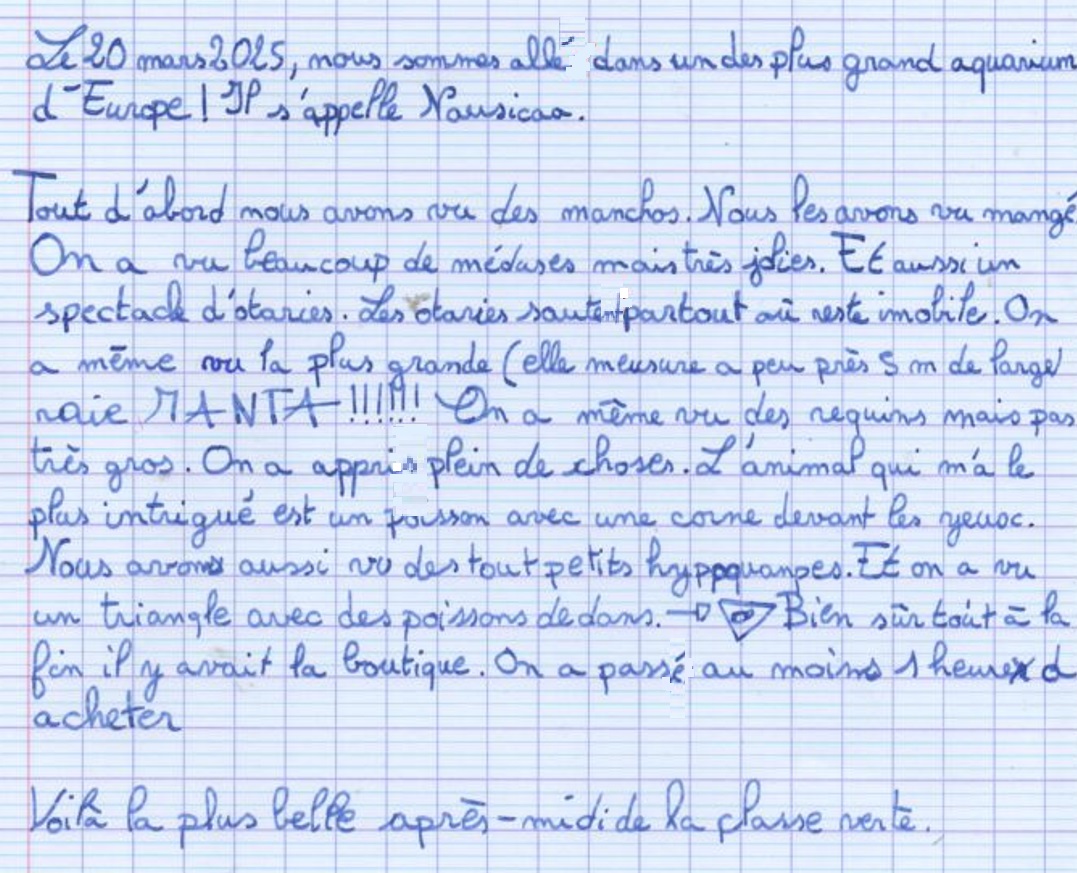 Le 20 mars 2025, nous sommes allé dans un des plus grand aquarium
d'Europe ! Il s'appelle Nausicaa.
Tout d'abord nous avons vu des manchos. Nous les avons vu mangé
On a vu beaucoup de méduses mais très jolies. Et aussi un
spectacle d'otaries. Les otaries sautent partout où reste imobile. On
a même vu la plus grande (elle meusure a peu près 5 m de large)
raie MANTA !!!!!! On a même vu des requins mais pas
très gros. On a appris plein de choses. L'animal qui m'a le
plus intrigué est un poisson avec une corne devant les yeux.
Nous avons aussi vu des tout petits hyppoquampes. Et on a vu
un triangle avec des poissons dedans. → Bien sûr tout à la
fin il y avait la boutique. On a passé au moins 1 heure d
acheter
Voilà la plus belle après-midi de la classe verte.